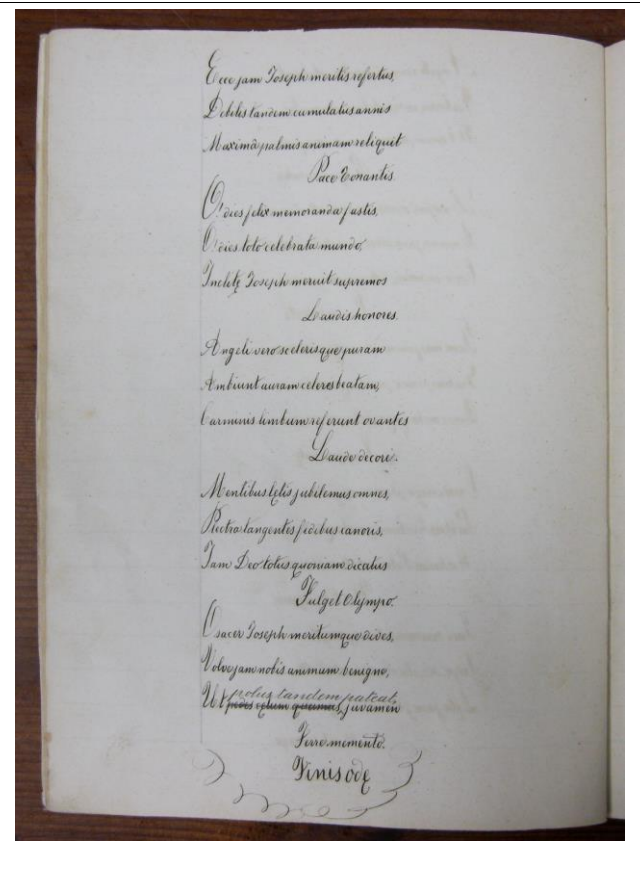 Ecce jam Joseph meritis refertus,
Debilis tandem cumulatus annis
Maximâ palmis animam reliquit
Pace Tonantis.
O! dies felix memoranda fastis,
O! dies toto celebrata mundo,
Inclitę Joseph meruit supremos
Laudis honores.
Angeli vero scelerisque puram
Ambiunt auram celeres beatam,
Carminis limbum referunt ovantes
Laude decore.
Mentibus lętis jubilemus omnes,
Plectra tangentes fidibus canoris,
Jam Deo totus quoniam dicatus
Fulget Olympo.
O sacer Joseph meritumque dives,
Volve jam nobis animum benigno,
polus tandem pateat,
Ut juvamen
Ferre memento.
Finis odę